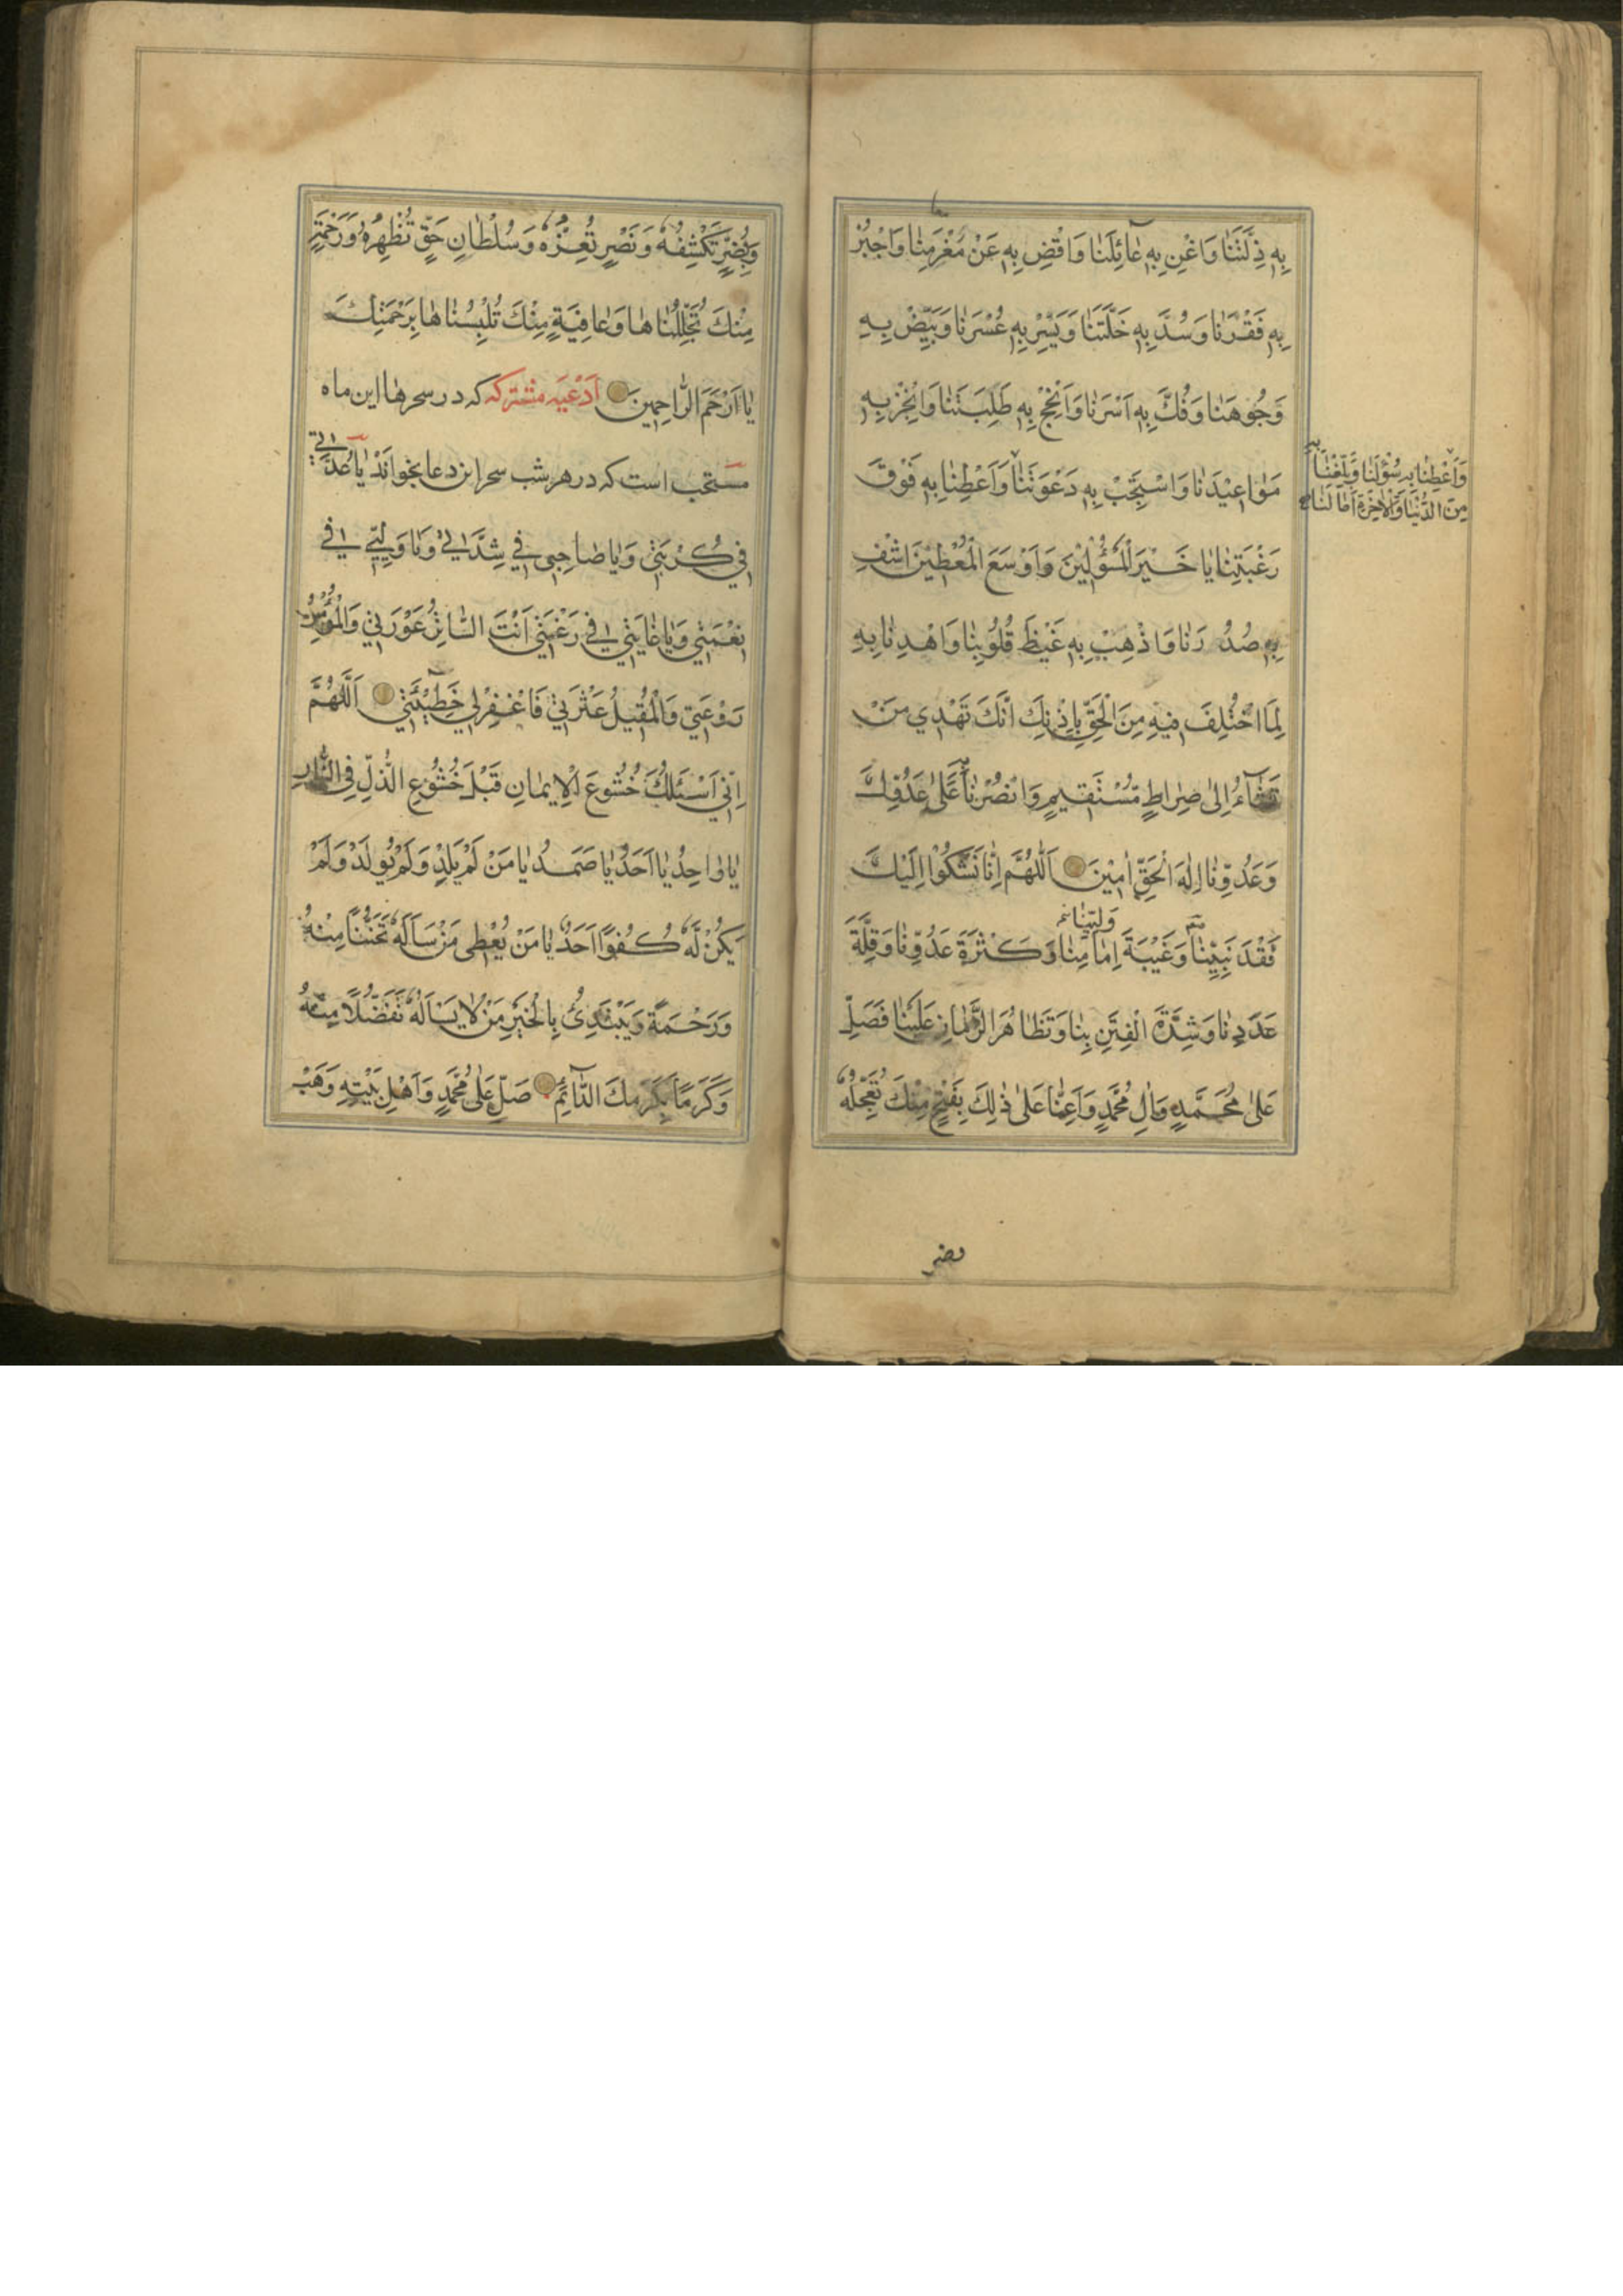 بِهِ ذِلَّتَنَا وَاَغْنِ بِهِ عَائِلَنَا وَاقْضِ بِهِ عَنْ مَغْرَمِنَا وَاجْبُرْ
بِهِ فَقْرَنَا وَسُدَّ بِهِ خَلَّتَنَا وَيَسِّرْ بِهِ عُسْرَنَا وَبَيِّضْ بِهِ
وُجُوهَنَا وَفُكَّ بِهِ اَسْرَنَا وَاَنْجِحْ بِهِ طَلِبَتَنَا وَاَنْجِزْ بِهِ
مَوَاعِيْدَنَا وَاسْتَجِبْ بِهِ دَعْوَتَنَا وَاَعْطِنَا بِهِ فَوْقَ
وَاَعْطِنَا بِهِ سُؤْلَنَا وَبَلِّغْنَا بِهِ
مِنَ الدُّنْيَا وَالْاٰخِرَةِ اٰمَالَنَا
رَغْبَتِنَا يَا خَيْرَ الْمَسْؤُلِيْنَ وَاَوْسَعَ الْمُعْطِيْنَ اشْفِ
بِهِ صُدُورَنَا وَاذْهِبْ بِهِ غَيْظَ قُلُوبِنَا وَاهْدِنَا بِهِ
لِمَا اخْتُلِفَ فِيهِ مِنَ الْحَقِّ بِاِذْنِكَ اِنَّكَ تَهْدِي مَنْ
تَشَاءُ اِلىٰ صِرَاطٍ مُسْتَقِيمٍ وَانْصُرْنَا بِهِ عَلىٰ عَدُوِّكَ
وَعَدُوِّنَا اِلٰهَ الْحَقِّ اٰمِيْنَ اَللّٰهُمَّ اِنَّا نَشْكُوا اِلَيْكَ
فَقْدَ نَبِيِّنَا وَغَيْبَةَ اِمَامِنَا وَكَثْرَةَ عَدُوِّنَا وَقِلَّةَ
وَلِيِّنَا
عَدَدِنَا وَشِدَّةَ الْفِتَنِ بِنَا وَتَظَاهُرَ الزَّمَانِ عَلَيْنَا فَصَلِّ
عَلىٰ مُحَمَّدٍ وَاٰلِ مُحَمَّدٍ وَاَعِنَّا عَلىٰ ذٰلِكَ بِفَتْحٍ مِنْكَ تُعَجِّلُهُ
وبضر
وَبِضُرٍّ تَكْشِفُهُ وَنَصْرٍ تُعِزُّهُ وَسُلْطَانِ حَقٍّ تُظْهِرُهُ وَرَحْمَةٍ
مِنْكَ تُجَلِّلُنَاهَا وَعَافِيَةٍ مِنْكَ تُلْبِسُنَاهَا بِرَحْمَتِكَ
يَا اَرْحَمَ الرَّاحِمِينَ اَدْعِيَه مشتركه كه در سحرها اين ماه
مستحب است كه در هر شب سحر اين دعا بخوانند يَا عُدَّتِي
فِي كُرْبَتِي وَيَا صَاحِبِي فِي شِدَّتِي وَيَا وَلِيِّي فِي
نِعْمَتِي وَيَا غَايَتِي فِي رَغْبَتِي اَنْتَ السَّاتِرُ عَوْرَتِي وَالْمُؤْمِنُ
رَوْعَتِي وَالْمُقِيلُ عَثْرَتِي فَاغْفِرْ لِي خَطِيْئَتِي اَللّٰهُمَّ
اِنِّي اَسْئَلُكَ خُشُوعَ الْاِيمَانِ قَبْلَ خُشُوعِ الذُّلِّ فِي النَّارِ
يَا وَاحِدُ يَا اَحَدُ يَا صَمَدُ يَا مَنْ لَمْ يَلِدْ وَلَمْ يُولَدْ وَلَمْ
يَكُنْ لَهُ كُفُوًا اَحَدٌ يَا مَنْ يُعْطِي مَنْ سَاَلَهُ تَحَنُّنًا مِنْهُ
وَرَحْمَةً وَيَبْتَدِئُ بِالْخَيْرِ مَنْ لَا يَسْاَلُهُ تَفَضُّلًا مِنْهُ
وَكَرَمًا بِكَرَمِكَ الدَّائِمِ صَلِّ عَلىٰ مُحَمَّدٍ وَاَهْلِ بَيْتِهِ وَهَبْ